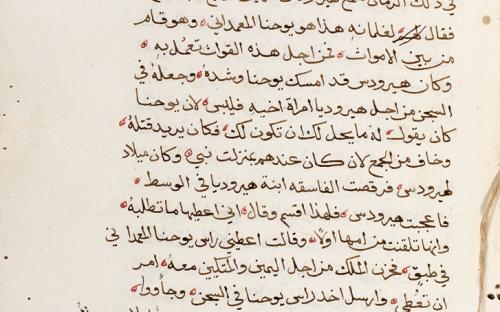 في ذلك الزمان
فقال لغلمانه هذا هو يوحنا المعمداني وهو قام
من بين الاموات فمن اجل هذه القوات تعمل به
وكان هيرودس قد امسك يوحنا وشده وجعله في
السجن من اجل هيروديا امراة اخيه فيلبس لان يوحنا
كان يقول له ما يحل لك ان تكون لك فكان يريد قتله
وخاف من الجمع لان كان عندهم بمنزلت نبي وكان ميلاد
لهيرودس فرقصت الفاسقه ابنة هيروديا في الوسط
فاعجبت هيرودس فلهذا اقسم وقال اني اعطيها ما تطلبه
وانها تلقنت من امها اولا وقالت اعطيني راس يوحنا المعمداني
في طبق فحزن الملك من اجل اليمين والمتكين معه امر
ان تعطى وارسل اخد راس يوحنا في السجن وجاووا